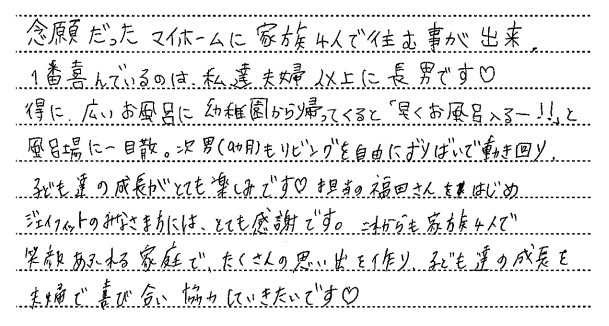 念願だった マイホームに 家族4人で住む事が出来、
1番喜んでいるのは、私達夫婦以上に長男です♡
得に 広いお風呂に 幼稚園から帰ってくると「早くお風呂入るー!!」と
風呂場に一目散。次男(9カ月)もリビングを自由にずりばいで動き回り、
子ども達の成長がとても楽しみです♡ 担当の福田さんをはじめ
ジェイフィットのみなさま方には、とても感謝です。これからも家族4人で
笑顔あふれる家庭で、たくさんの思い出を作り、子ども達の成長を
夫婦で喜び合い協力していきたいです♡